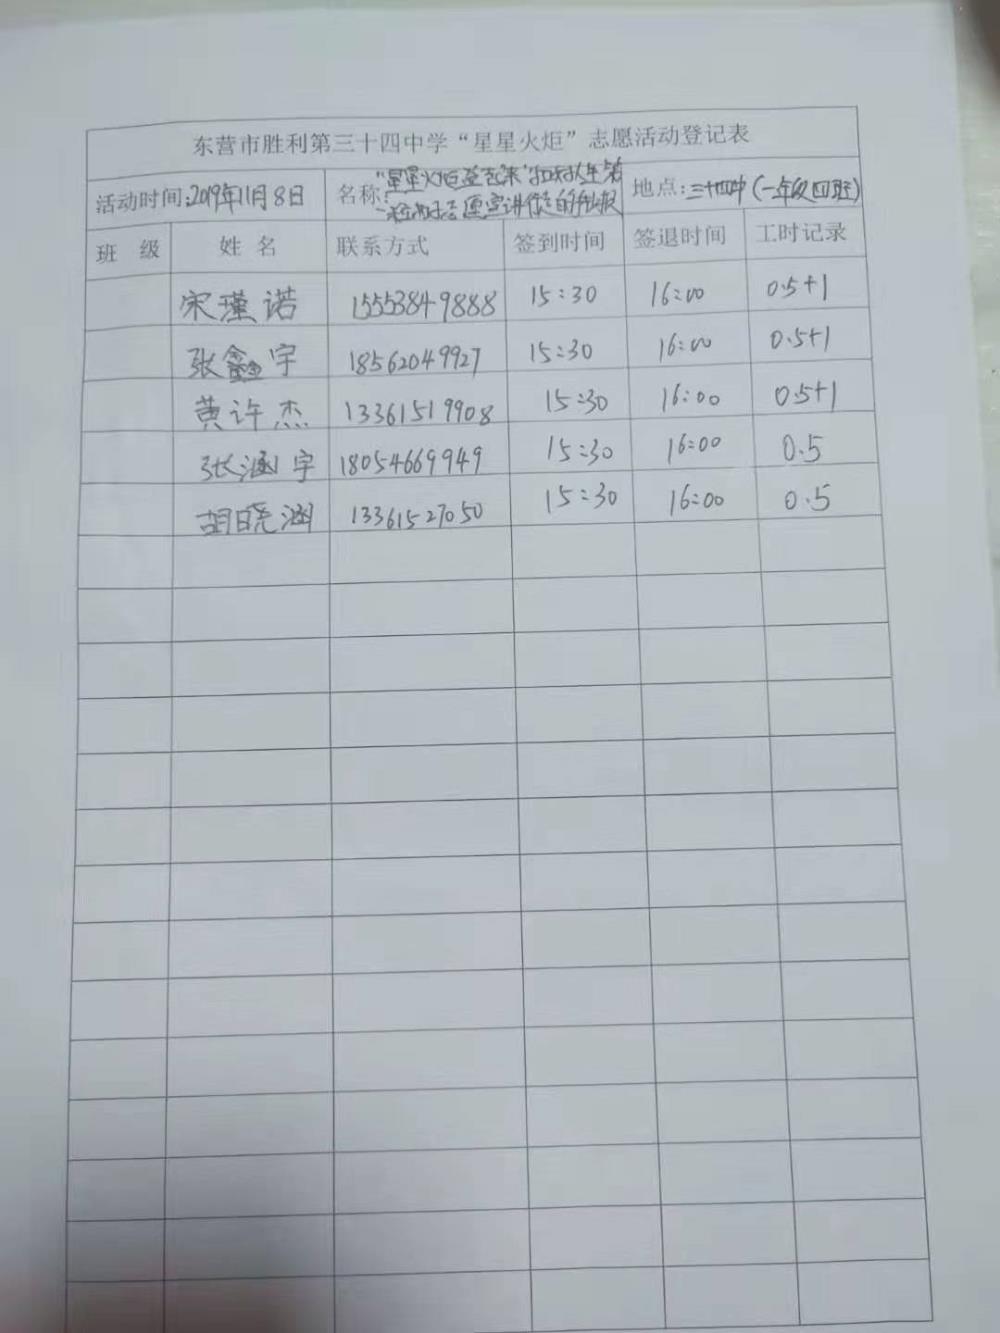 东营市胜利第三十四中学“星星火炬”志愿活动登记表
活动时间:2019年11月8日 名称 “星星火炬 扣好人生第 地点:三十四中(一年级四班)
一粒扣子 宣讲
班 级 姓 名 联系方式 签到时间 签退时间 工时记录
宋瑾诺 15553849888 15:30 16:00 0.5+1
张鑫宇 18562049927 15:30 16:00 0.5+1
黄许杰 13361519908 15:30 16:00 0.5+1
张涵宇 18054669949 15:30 16:00 0.5
胡晓涵 13361527050 15:30 16:00 0.5